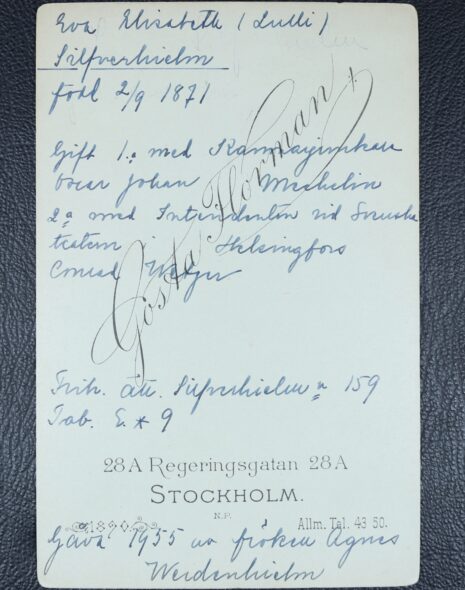 Eva Elisabeth (Lulli)
Silfverhielm
född 2/9 1871
Gift 1.a med Kammarjunkare
Oscar Johan Mechelin
2.a med Intendenten vid Svenska
teatern i Helsingfors
Conrad
Gösta Florman
Frih. ätt. Silfverhielm n 159
Tab. 9
28 A Regeringsgatan 28 A
STOCKHOLM.
N.P.
1890. Allm. Tel. 43 50.
Gåva 1955 av fröken Agnes
Weidenhielm